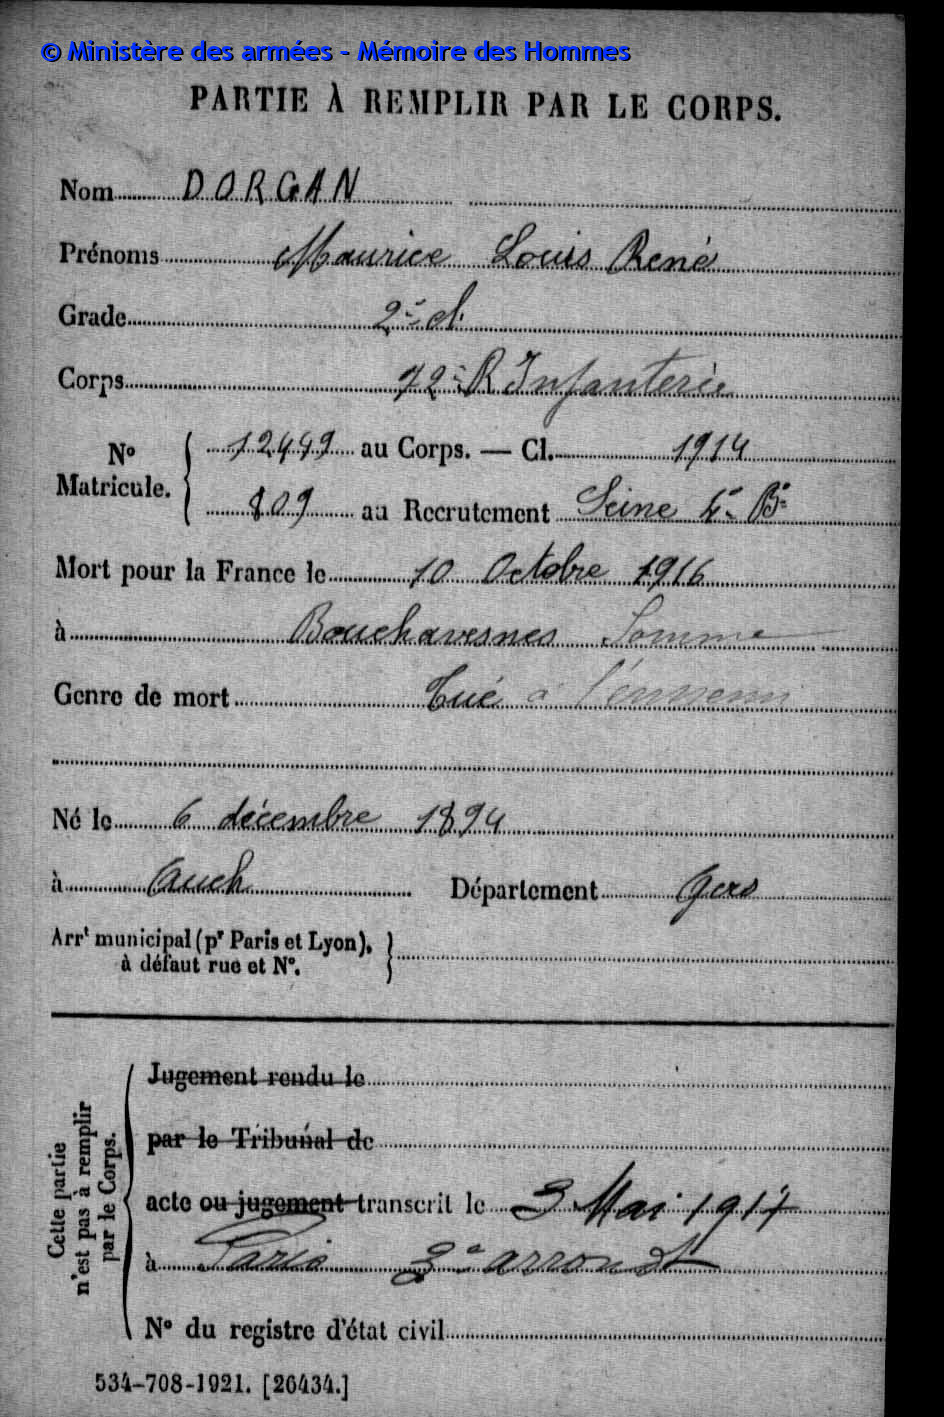 © Ministère des armées - Mémoire des Hommes
PARTIE À REMPLIR PAR LE CORPS.
Nom DORGAN
Prénoms Maurice Louis René
Grade 2e cl.
Corps 72e R Infanterie
No Matricule. { 12449 au Corps. — Cl. 1914
809 au Recrutement Seine 4e Bu
Mort pour la France le 10 Octobre 1916
à Bouchavesnes Somme
Genre de mort Tué à l'ennemi
Né le 6 décembre 1894
à Auch Département Gers
Arrt municipal (pr Paris et Lyon), à défaut rue et No.
Cette partie n'est pas à remplir par le Corps.
Jugement rendu le
par le Tribunal de
acte ou jugement transcrit le 3 Mai 1917
à Paris 3e arrondt
No du registre d'état civil
534-708-1921. [26434.]